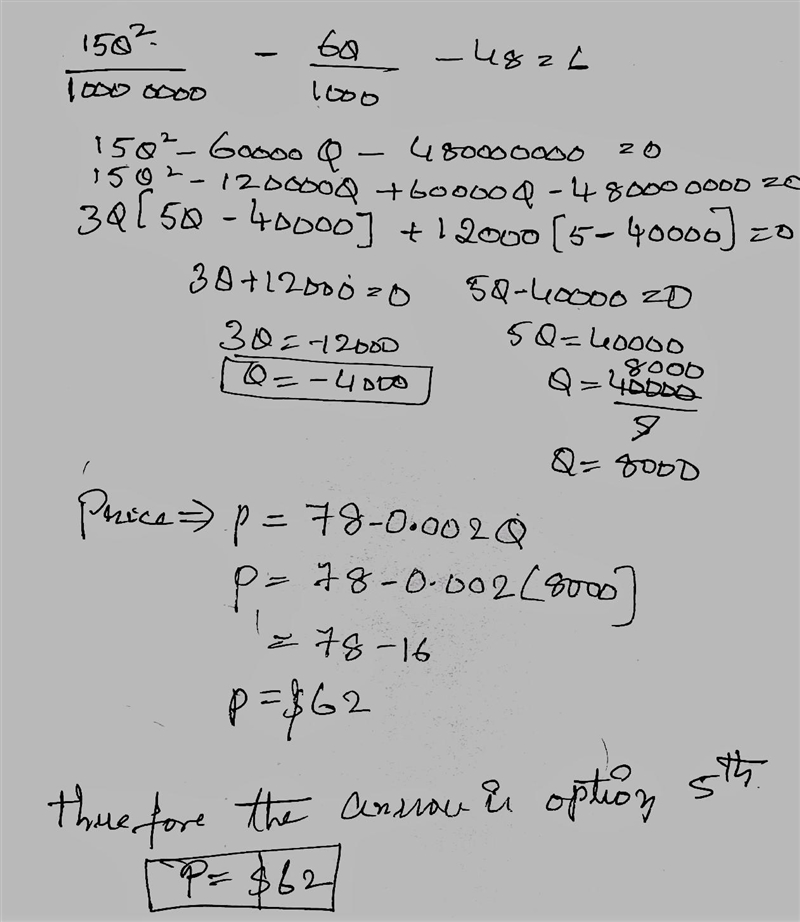 15Q²/10000000 - 6Q/1000 - 48 = 6
15Q² - 60000Q - 480000000 = 0
15Q² - 120000Q + 60000Q - 480000000 = 0
3Q[5Q - 40000] + 12000[5 - 40000] = 0
3Q + 12000 = 0 5Q - 40000 = 0
3Q = -12000 5Q = 40000
Q = -4000 8000
Q = 40000/5
Q = 8000
Price ⇒ P = 78 - 0.002Q
P = 78 - 0.002(8000]
= 78 - 16
P = $62
therefore the answer is option 5th
P = $62